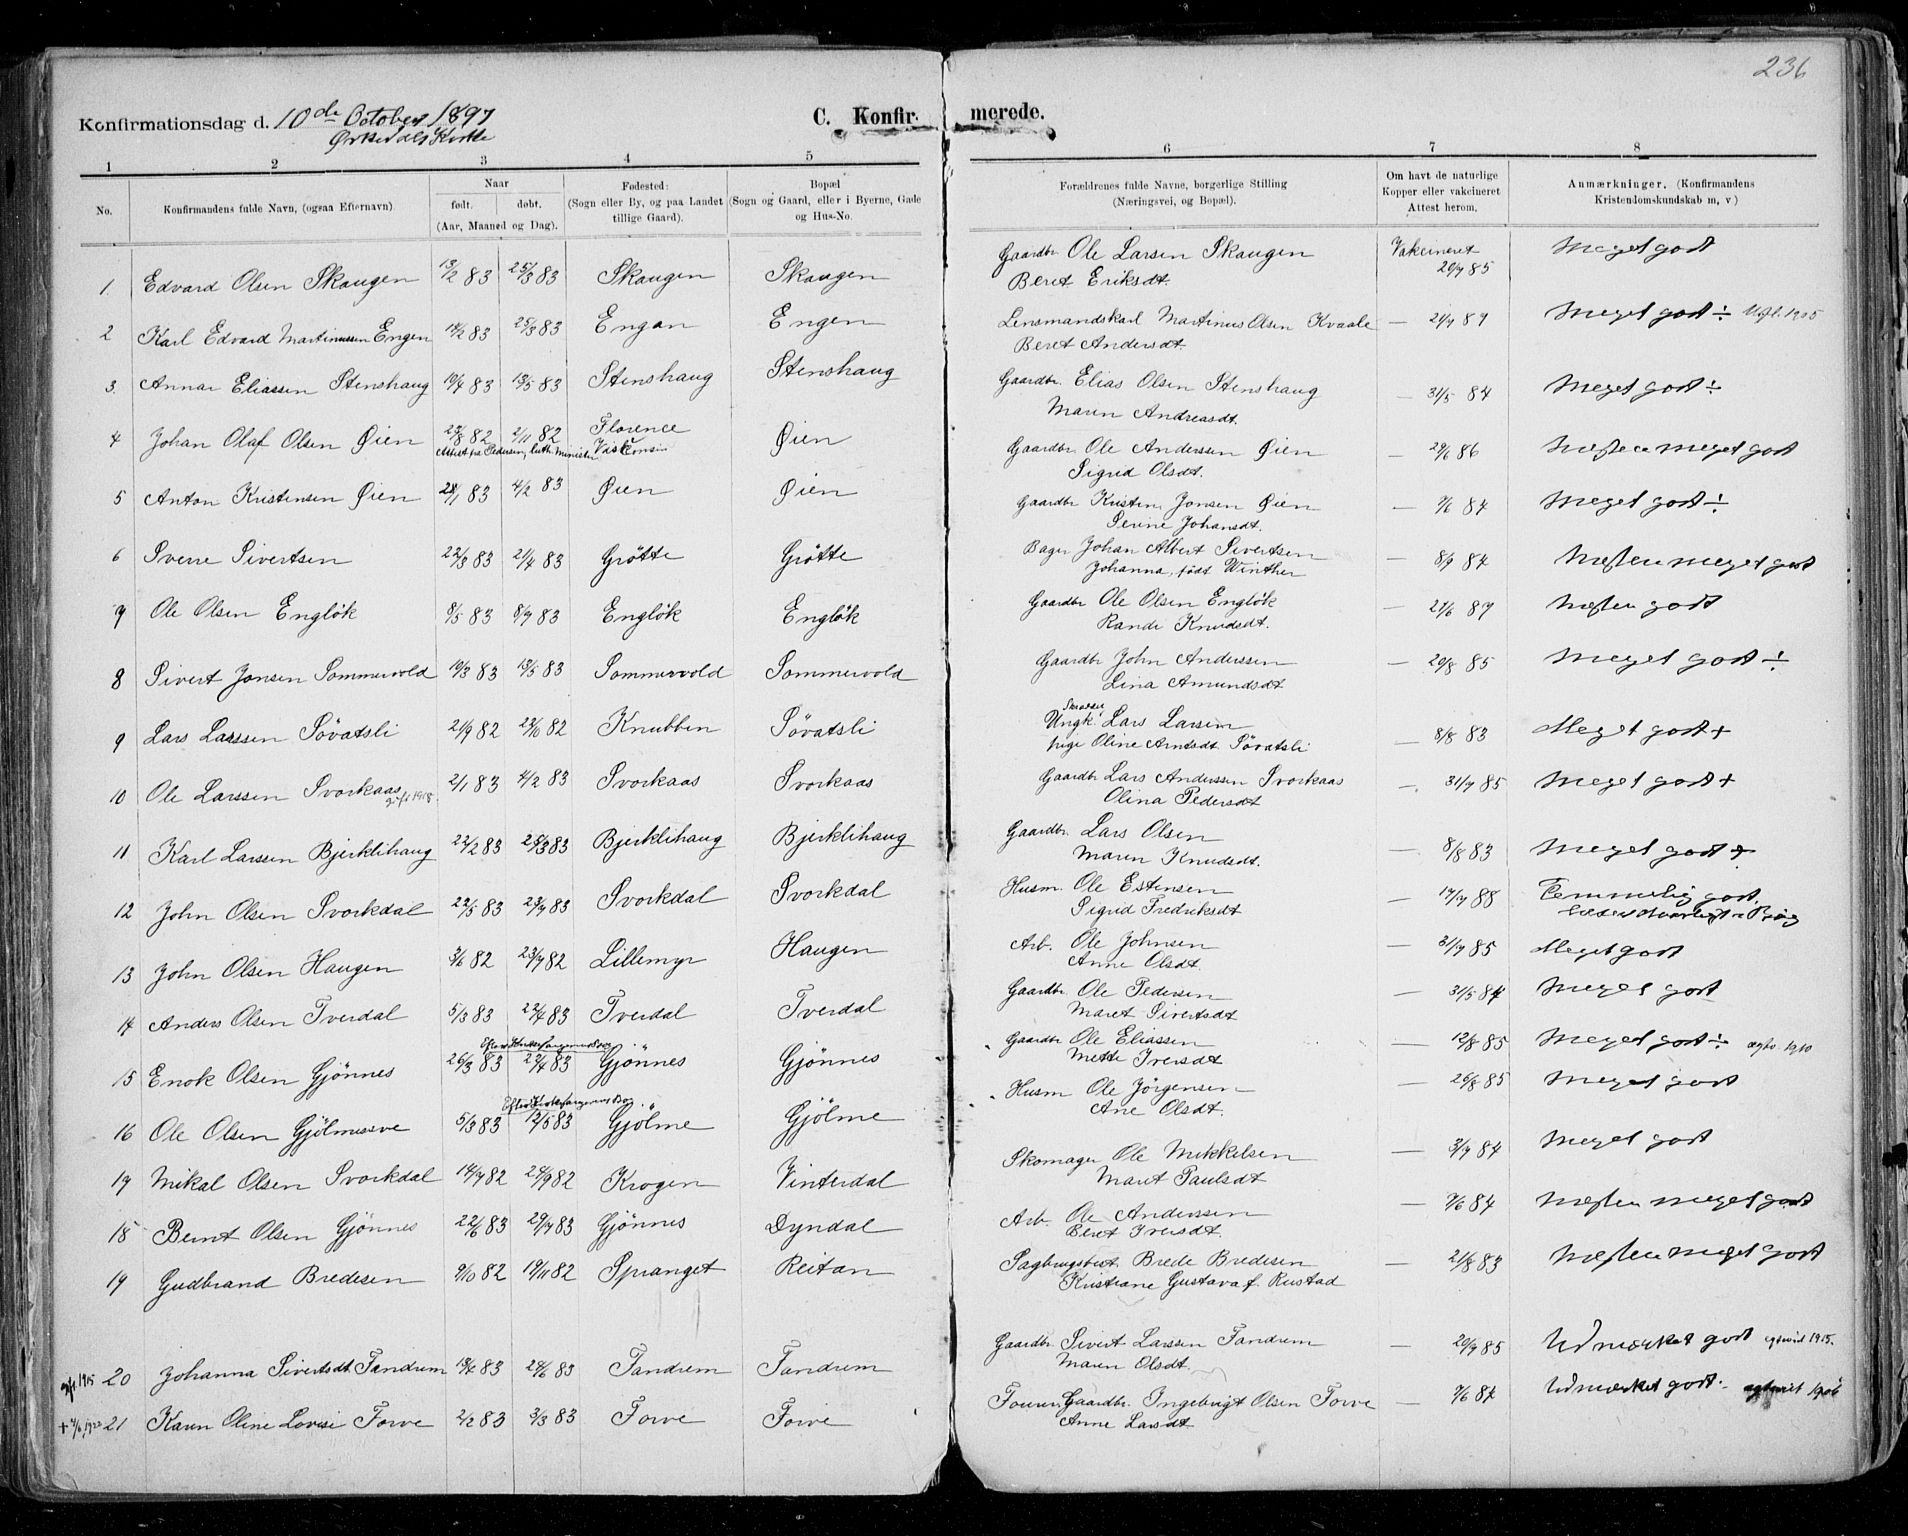 236
Konfirmationsdag d. 10de October 1897 C. Konfirmerede.
Ørkedals Kirke
1 2 3 4 5 6 7 8
No. Konfirmandens fulde Navn, (ogsaa Efternavn) Naar født. døbt. (Aar, Maaned og Dag). Fødested: (Sogn eller By, og paa Landet tillige Gaard). Bopæl (Sogn og Gaard, eller i Byerne, Gade og Hus-No. Forældrenes fulde Navne, borgerlige Stilling (Næringsvei, og Bopæl). Om havt de naturlige Kopper eller vakcineret Attest herom. Anmærkninger. (Konfirmandens Kristendomskundskab m, v)
1. Edvard Olsen Skaugen 13/2 83 25/3 83 Skaugen Skaugen Gaardbr Ole Larsen Skaugen Vakcineret 20/7 85 Meget godt
Beret Eriksdt.
2 Karl Edvard Martinussen Engen 18/2 83 25/3 83 Engan Engen Lensmandskarl Martinus Olsen Kvaale — 21/7 87 Meget godt ÷ Utfl. 1905
Beret Andersdt.
3. Annar Eliassen Stenshaug 10/4 83 13/5 83 Stenshaug Stenshaug Gaardbr. Elias Olsen Stenshaug — 31/5 84 Meget godt ÷
Maren Andreasdt.
4 Johan Olaf Olsen Øien 22/8 82 2/11 82 Florence Øien Gaardbr. Ole Anderssen Øien — 29/6 86 Næsten meget godt
Attest fra Pedersen, luth. Minister Viskonsin Sigrid Olsdt.
5 Anton Kristensen Øien 28/1 83 4/2 83 Øien Øien Gaardbr Kristen Jonsen Øien — 7/6 84 Meget godt ÷
Serine Johansdt.
6 Sverre Sivertsen 22/3 83 21/4 83 Grötte Grötte Bager Johan Albert Sivertsen — 8/9 84 Næsten meget godt
Johanna, født Winther
7 Ole Olsen Englök 8/5 83 8/7 83 Englök Englök Gaardbr Ole Olsen Englök — 21/6 87 Næsten godt
Randi Knudsdt.
8 Sivert Jonsen Sommervold 10/3 83 13/5 83 Sommervold Sommervold Gaardbr John Anderssen — 20/8 85 Meget godt ÷
Lina Amundsdt
9 Lars Larssen Sövatsli 21/9 82 29/10 82 Knubben Sövatsli Ungk. Lars Larsen — 8/8 83 Meget godt +
pige Oline Arntsdt. Sövatsli
10 Ole Larssen Svorkaas 2/1 83 4/2 83 Svorkaas Svorkaas Gaardbr Lars Anderssen Svorkaas — 31/7 85 Meget godt +
Olina Pedersdt
11 Karl Larssen Bjerklihaug 22/2 83 25/3 83 Bjerklihaug Bjerklihaug Gaardbr. Lars Olsen — 8/8 83 Meget godt +
Maren Knudsdt.
12 John Olsen Svorkdal 22/5 83 29/7 83 Svorkdal Svorkdal Husm. Ole Estensen — 17/7 88 Temmelig godt.
Sigrid Fredriksdt
13 John Olsen Haugen 3/6 82 23/7 82 Lillemyr Haugen Arb. Ole Johnsen — 31/7 85 Meget godt
Anne Olsdt.
14 Anders Olsen Tverdal 5/3 83 22/4 83 Tverdal Tverdal Gaardbr. Ole Pedersen — 31/5 84 Meget godt
Maret Sivertsdt
15 Enok Olsen Gjönnes 26/3 83 29/4 83 Gjönnes Gjönnes Gaardbr Ole Eliassen — 12/8 85 Meget godt ÷ ægtv. 1910
Mette Iversdt
16 Ole Olsen Gjölmesve 5/3 83 12/5 83 Gjölme Gjölme Husm Ole Jörgensen — 20/8 85 Meget godt
Ane Olsdt.
17 Mikal Olsen Svorkdal 14/7 82 24/9 82 Krogen Vinterdal Skomager Ole Mikkelsen — 3/7 84 Meget godt
Maret Paulsdt
18 Bernt Olsen Gjönnes 22/6 83 29/7 83 Gjönnes Dyndal Arb. Ole Anderssen — 7/6 84 Næsten meget godt
Beret Iversdt.
19 Gudbrand Bredesen 9/10 82 19/11 82 Spranget Reitan Sagbrugsbest. Brede Bredesen — 21/8 83 Næsten meget godt
Kristiane Gustava f. Rustad
20 Johanna Sivertsdt. Tandrem 13/4 83 24/6 83 Tandrem Tandrem Gaardbr Sivert Larssen Tandrem — 20/7 85 Udmærket godt 1915.
Maren Olsdt.
21 Karen Oline Lovise Forve 2/2 83 3/3 83 Forve Forve Gaardbr. Ingebrigt Olsen Forve — 7/6 84 Udmærket godt. 1906
Anne Larsdt